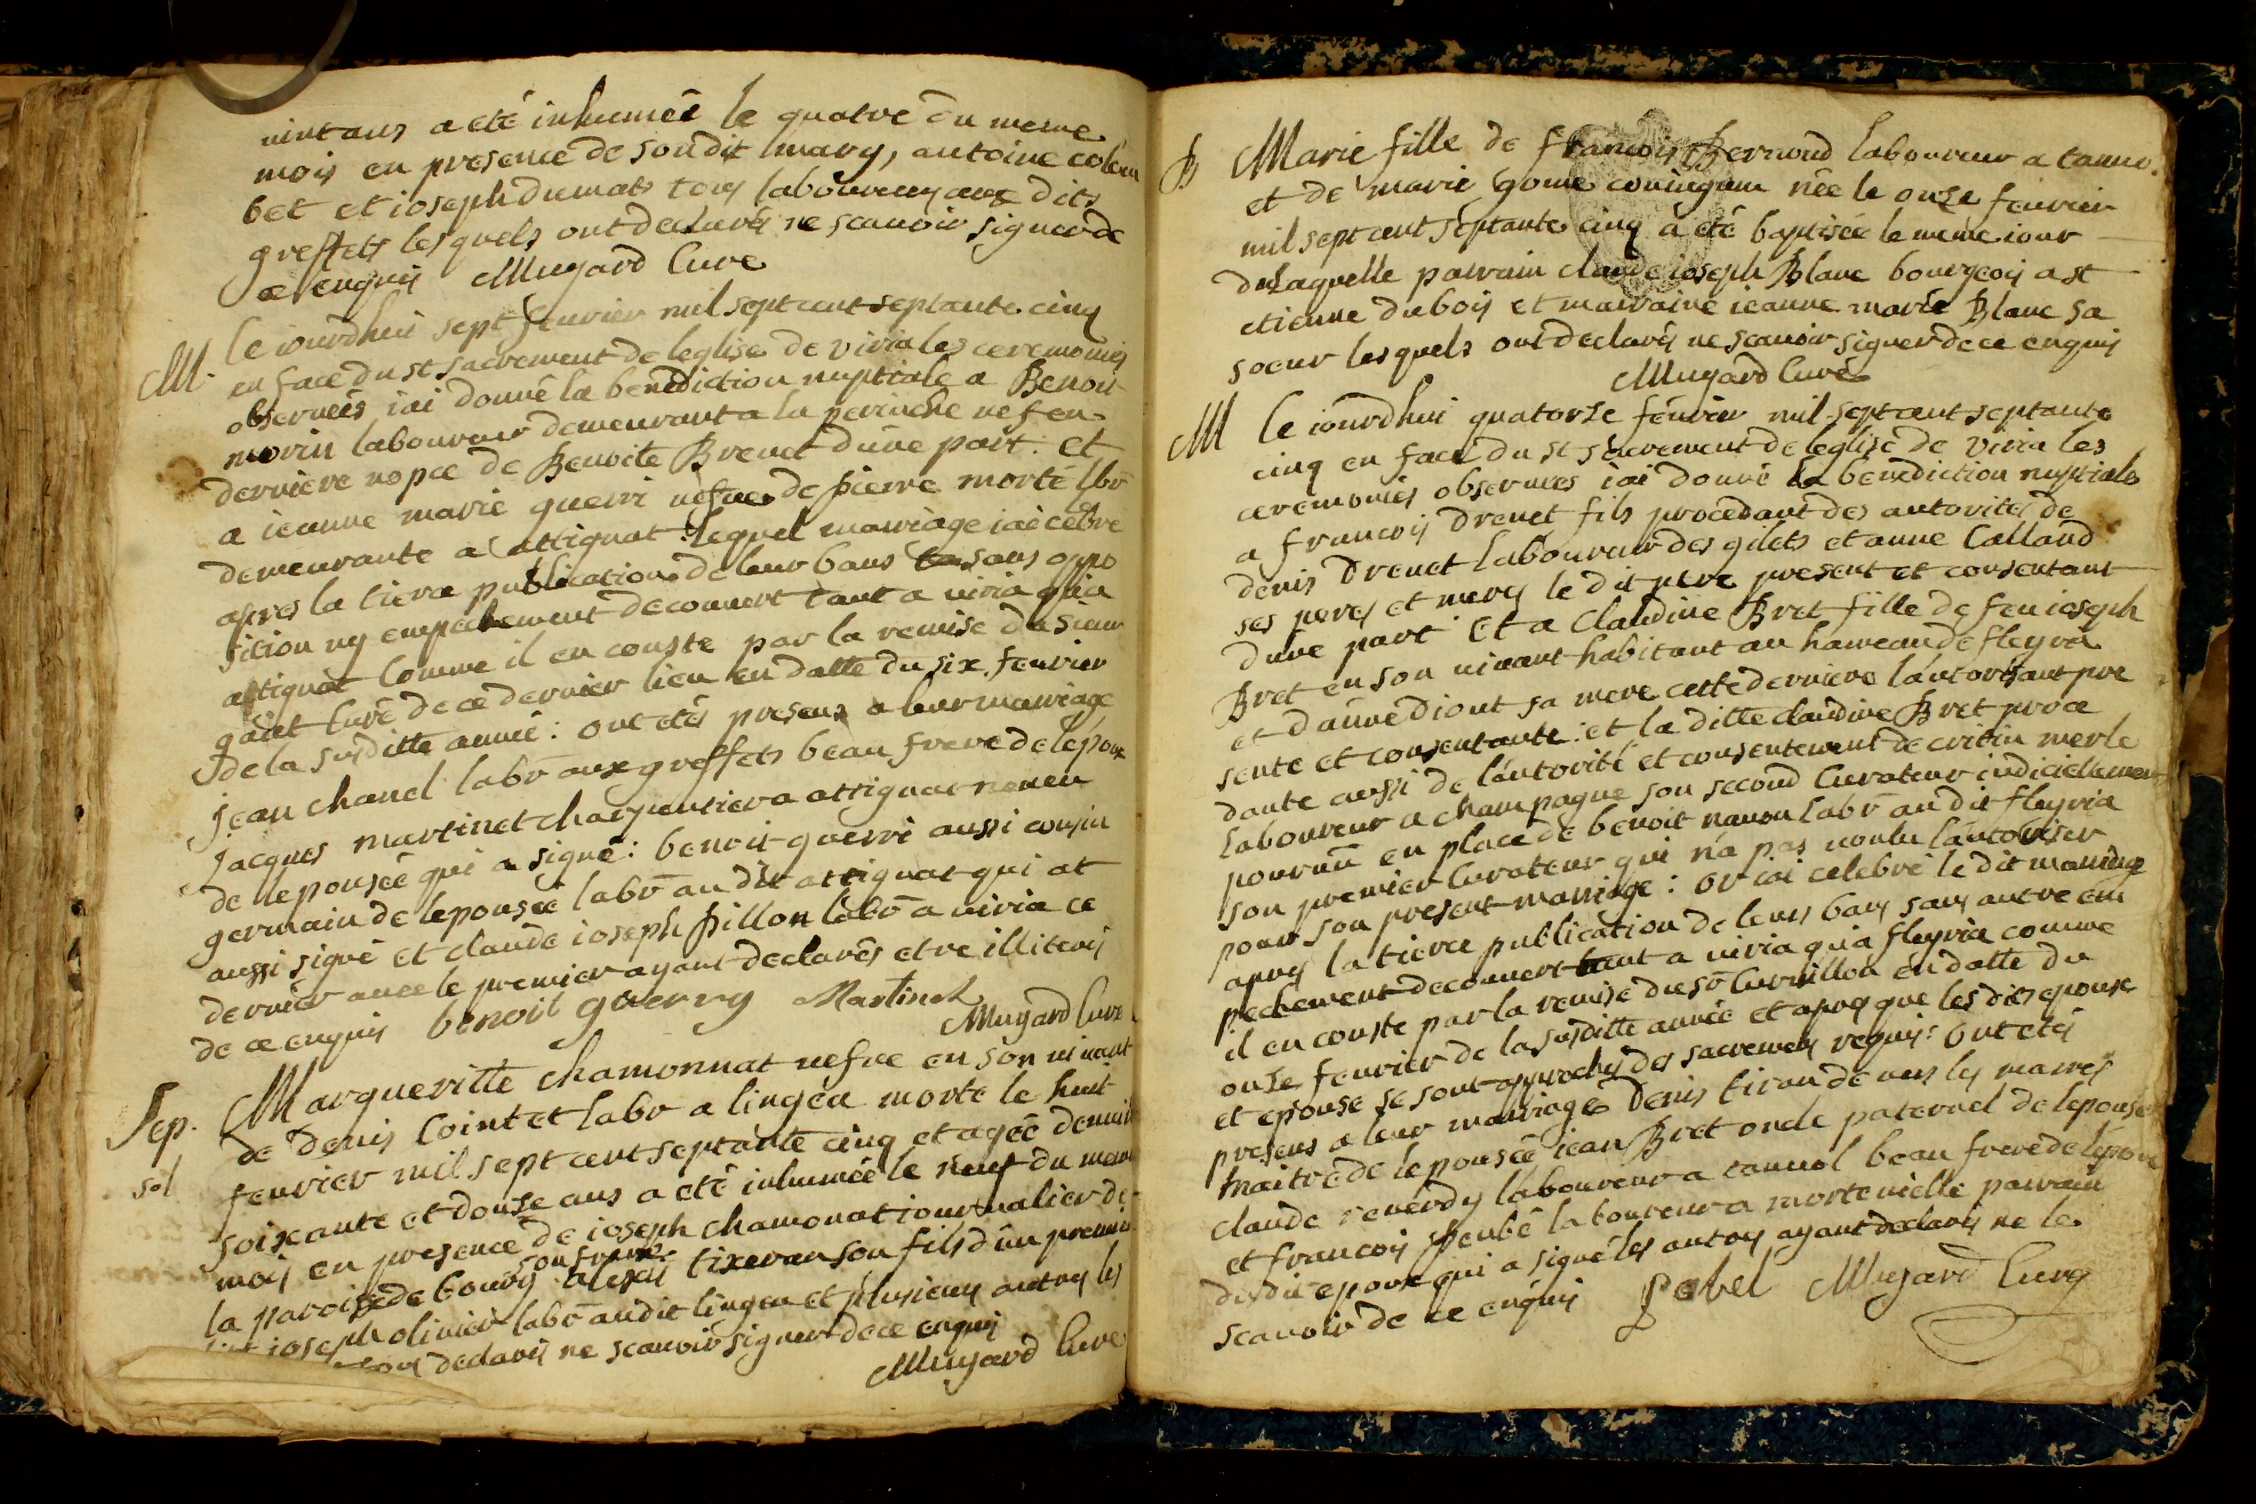 vint ans a eté inhumée le quatre du meme
mois en presence de son dit mary, antoine colom
bet et ioseph dumats tous laboureurs aux dits
greffets lesquels ont declarés ne scauoir signer de
ce enquis Mugard Curé
M. Ce iourdhui sept feurier mil sept cent septante cinq
en face du st sacrement de leglise de viria les ceremonies
obseruées iai donné la benediction nuptiale a Benoit
morin laboureur demeurant a la perinche uef en
derniere nopce de Benoite Brenet d'une part: et
a ieanne marie guerri uefue de pierre morté labr
demeurante a attignat: lequel marriage iai celbré
apres la tierce publication de leur bans sans oppo
sition ny empechement decouuert tant a uiria qu'a
attignat comme il en conste par la remise du sieur
curé de ce dernier lieu en datte du six feurier
de la susditte année: ont etés presens a leur marriage
jean chanel labr aux greffets beau frere de lepoux
jacques martinet charpentier a attignat neueu
de lepousée qui a signé: benoit guerri aussi cousin
germain de lepousée labr au dit attignat qui at
aussi signé et claude ioseph pillon labr a uiria ce
dernier auec le premier ayant declarés etre illiterés
de ce enquis benoit guerry Martinet
Mugard Curé
Sep. Margueritte chamonnat uefue en son uiuant
de denis Cointet labr a lingéa morte le huit
sol feurier mil sept cent septante cinq et agée denuiron
soixante et douse ans a eté inhumée le neuf du meme
mois en presence de ioseph chamonat iournalier de
son frere
la paroisse de bourg alexis tixeran son fils d'un premier
lit ioseph oliuier labr audit lingea et plusieurs autres les
declarés ne scauoir signer de ce enquis
Mugard Curé
B Marie fille de francois Bernoud laboureur a tanno.
et de marie gome coniugum née le onze feurier
mil sept cent septante cinq a eté baptisée le meme iour
de laquelle parrain claude ioseph Blanc bourgeois a st
etienne dubois et marraine ieanne marie Blanc sa
soeur lesquels ont declarés ne scauoir signer de ce enquis
Mugard Curé
M Ce iourdhui quatorse féurier mil sept cent septante
cinq en face du st sacrement de leglise de viria les
ceremonies obseruées iai donné la benediction nuptiale
a francois Drenet fils procedant des autorités de
denis Drenet laboureur des gilets et anne Calland
ses peres et meres le dit pere present et consentant
d'une part Et a Claudine Bret fille de feu ioseph
Bret en son uiuant habitant au hameau de fleyria
et d'anne diont sa mere cette derniere l'autorisant pre
sente et consentante: et la ditte claudine Bret proce
dante aussi de l'autorité et consentement de cretin merle
laboureur a champagne son second Curateur iudiciellement
pouruû en place de benoit nauon labr au dit fleyria
son premier Curateur qui n'a pas uoulu l'autoriser
pour son present marriage: or iai celebré le dit marriage
apres la tierce publication de leurs bans sans autre em
pechement decouuert tant a uiria qu'a fleyria comme
il en conste par la remise du sr Curnillon en datte du
onse feurier de la susditte année et apres que les dits epoux
et epouse se sont approchés des sacremens requis: ont etés
presens a leur marriage denis tirand de uers les marres
maitre de lepousée iean Bret oncle paternel de lepouse
claude reuerdy laboureur a tannol beau frere de lepoux
et francois peubé laboureur a morteuielle parrain
du dit epoux qui a signé les autres ayant declarés ne le
scauoir de ce enquis Pobel Mugard Curé